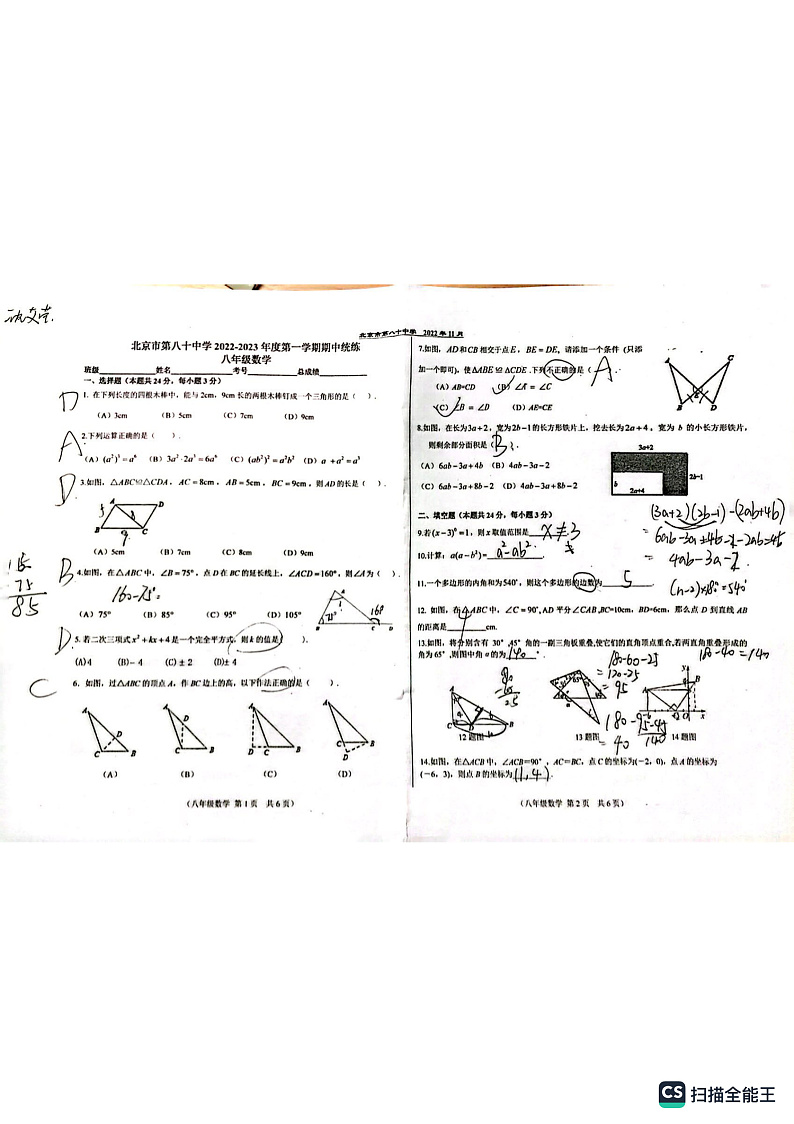 北京市第八十中学 2022-2023 年度第一学期期中统练
八年级数学
班级 姓名 考号 总成绩
一、选择题（本题共24分，每小题3分）
D 1. 在下列长度的四根木棒中，能与 2cm，9cm 长的两根木棒钉成一个三角形的是（ ）．
(A) 3cm (B) 5cm (C) 7cm (D) 9cm
A 2.下列运算正确的是（ ）．
(A) (a²)³ = a⁶ (B) 3a²·2a³ = 6a⁶ (C) (ab²)² = a²b² (D) a + a² = a³
D 3.如图，△ABC≌△CDA，AC = 8cm，AB = 5cm，BC = 9cm，则 AD 的长是（ ）．
A D
5 8
B C
9
(A) 5cm (B) 7cm (C) 8cm (D) 9cm
B 4.如图，在△ABC 中，∠B = 75°，点 D 在 BC 的延长线上，∠ACD = 160°，则∠A 为（ ）．
75
85
160-75=
(A) 75° (B) 85° (C) 95° (D) 105°
A
75° 160
B C D
D 5. 若二次三项式 x² + kx + 4 是一个完全平方式，则 k 的值是（ ）．
(A) 4 (B) - 4 (C) ± 2 (D) ± 4
C 6．如图，过△ABC 的顶点 A，作 BC 边上的高，以下作法正确的是（ ）．
A D C B
A D C B
A D C B
A C D B
(A) (B) (C) (D)
（八年级数学 第 1 页 共 6 页）
北京市第八十中学 2022 年 11 月
7.如图，AD 和 CB 相交于点 E，BE = DE，请添加一个条件（只添
加一个即可)，使△ABE ≌ △CDE .下列不正确的是（ A ．
(A) AB=CD (B) ∠A = ∠C
(C) ∠B = ∠D (D) AE=CE
A C
E
B D
8.如图，在长为3a+2，宽为2b-1的长方形铁片上，挖去长为2a+4，宽为 b 的小长方形铁片，
则剩余部分面积是（ B ）．
(A) 6ab-3a+4b (B) 4ab-3a-2
(C) 6ab-3a+8b-2 (D) 4ab-3a+8b-2
3a+2
2b-1
b
2a+4
二、填空题（本题共 24 分，每小题 3 分）
(3a+2)(2b-1)-(2ab+4b)
9.若(x-3)⁰=1，则 x 取值范围是 x≠3
= 6ab-3a+4b-2-2ab-4b
10.计算：a(a-b²)= a²-ab² .
= 4ab-3a-2
11.一个多边形的内角和为540°，则这个多边形的边数为 5 ．
(n-2)×180°=540°
12. 如图，在△ABC 中，∠C = 90°, AD 平分∠CAB ,BC=10cm，BD=6cm，那么点 D 到直线 AB
的距离是 4 cm.
13.如图，将分别含有 30°,45° 角的一副三角板重叠,使它们的直角顶点重合,若两直角重叠形成的
角为 65°,则图中角 α 的为 140 °．
180-60-25
180-40=140
= 120-25
= 95
180-95-45
= 40
12 题图 13 题图 14 题图
14.如图，在△ACB 中，∠ACB=90°，AC=BC，点 C 的坐标为(-2，0)，点 A 的坐标为
(-6，3)，则点 B 的坐标为 (1,4) ．
（八年级数学 第 2 页 共 6 页）
CS 扫描全能王